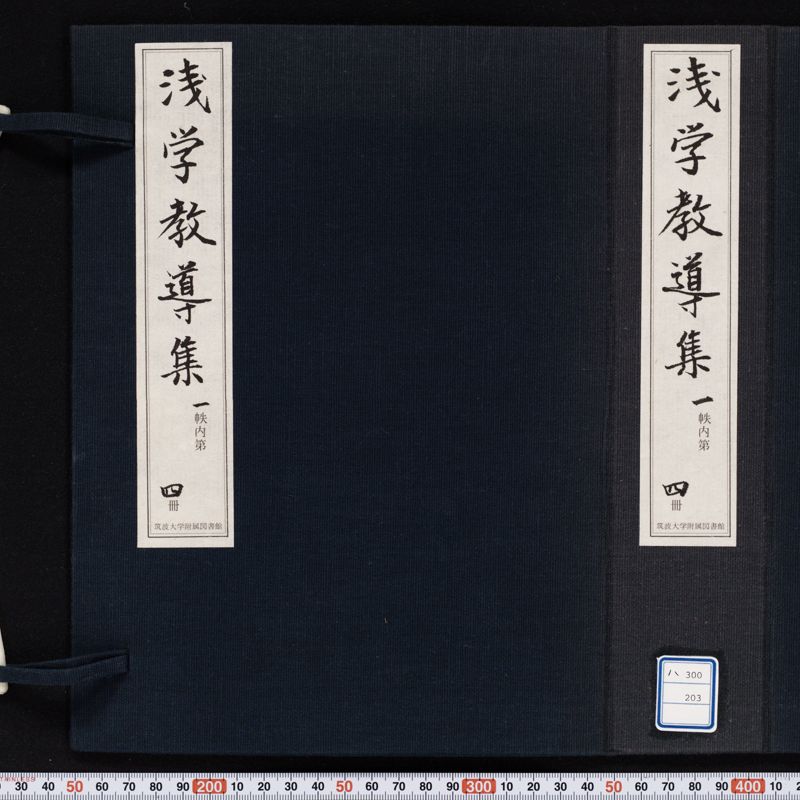 浅学教導集
一帙内第
四冊
筑波大学附属図書館
浅学教導集
一帙内第
四冊
筑波大学附属図書館
ハ 300
203
30 40 50 60 70 80 90 200 10 20 30 40 50 60 70 80 90 300 10 20 30 40 50 60 70 80 90 400 10